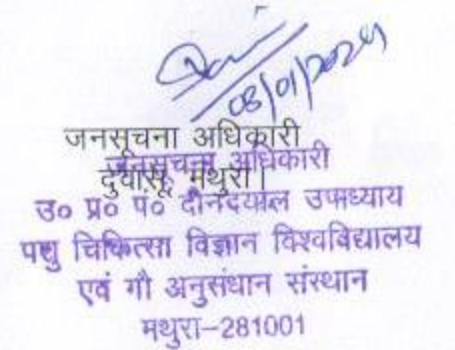 08/01/2024
जनसूचना अधिकारी
जनसूचना अधिकारी
दुवासू, मथुरा।
उ० प्र० पं० दीनदयाल उपाध्याय
पशु चिकित्सा विज्ञान विश्वविद्यालय
एवं गौ अनुसंधान संस्थान
मथुरा-281001